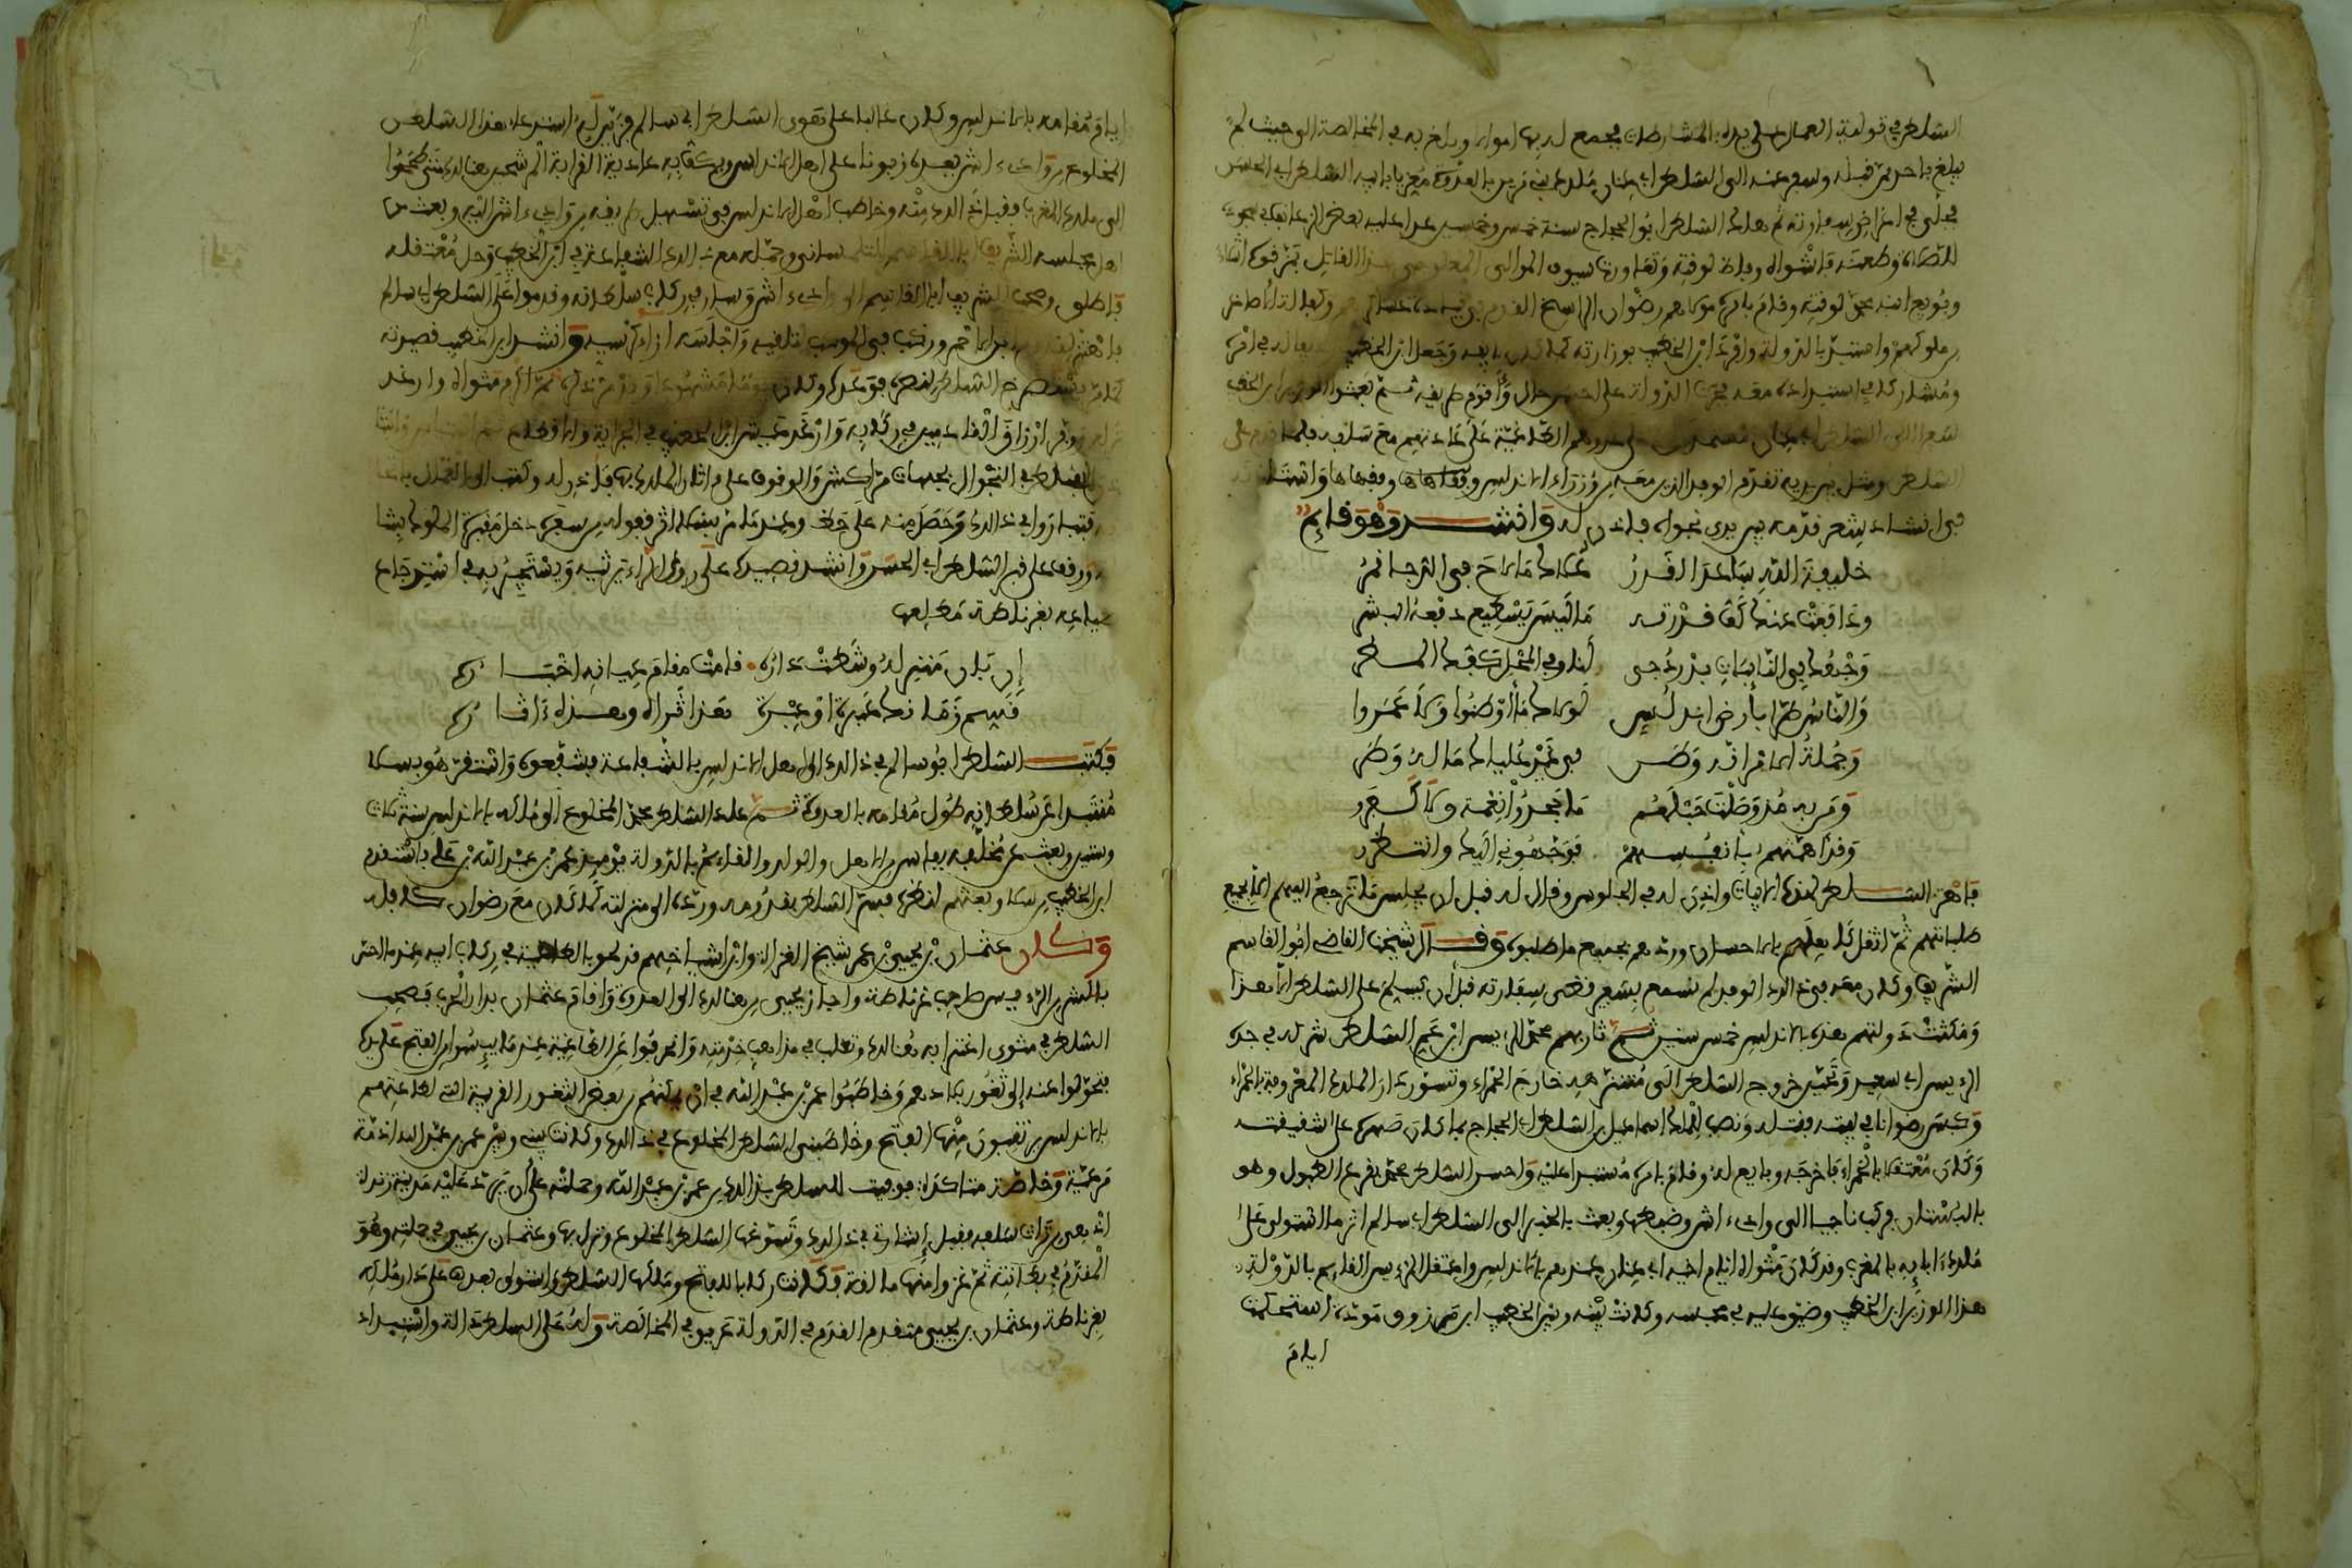 السلطان في تولية العمال على يده بالمشارطات فجمع له بها أموالا وبلغ به في المخالصة إلى حيث لم
يبلغ بأحد ممن قبله وسفر عنه إلى السلطان أبي عنان ملك بني مرين بالعدوة معزيا بأبيه السلطان أبي الحسن
فجلى في أغراض سفارته ثم هلك السلطان أبو الحجاج سنة خمس وخمسين عدا عليه بعض الزعانف في سجوده
للصلاة وطعنه فأشواه وفاظ لوقته وتعاورت سيوف الموالي المعلوجي هذا القاتل فمزقوه أشلاء
وبويع ابنه محمد لوقته وقام بأمره مولاهم رضوان الراسخ القدم في قيادة عساكرهم وكفالة الأصاغر
من ملوكهم واستبد بالدولة وأفرد ابن الخطيب بوزارته كما كان لأبيه وجعل ابن الخطيب رديفا له في أمره
ومشاركا في استبداده معه فجرت الدولة على أحسن حال وأقوم طريقة ثم بعثوا الوزير ابن الخطيب
سفيرا إلى السلطان أبي عنان مستمدين له على عدوهم الطاغية على عادتهم مع سلفه فلما قدم على
السلطان ومثل بين يديه تقدم الوفد الذين معه من وزراء الأندلس وفقهائها وفقهاها واستأذنه
في إنشاد شعر قدمه بين يدي نجواه فأذن له وأنشد وهو قائم
خليفة الله ساعد القدر علاك ما لاح في الدجا قمر
ودافعت عنك كف قدرته ما ليس يسطيع دفعه البشر
وجهك في النائبات بدر دجى لنا وفي المحل كفك المطر
والناس طرا بأرض أندلس لولاك ما أوطنوا ولا عمروا
وجملة الأمر أنه وطن في غير علياك ما له وطر
ومن به مذ وصلت حبلهم ما جحدوا نعمة ولا كفروا
وقد أهمتهم بأنفسهم فوجهوني إليك وانتظروا
فاهتز السلطان لهذه الأبيات وأذن له في الجلوس وقال له قبل أن يجلس ما ترجع إليهم إلا بجميع
طلباتهم ثم أثقل كاهلهم بالإحسان وردهم بجميع ما طلبوه وقال شيخنا القاضي أبو القاسم
الشريف وكان معه في ذلك الوفد لم نسمع بسفير قضى سفارته قبل أن يسلم على السلطان إلا هذا
ومكثت دولتهم هذه بالأندلس خمس سنين ثم ثار بهم محمد الرئيس ابن عم السلطان شركه في جده
الرئيس أبي سعيد وتحين خروج السلطان إلى متنزهه خارج الحمراء وتسور دار الملك المعروفة بالحمراء
وكبس رضوانا في بيته فقتله ونصب للملك إسماعيل بن السلطان أبي الحجاج بما كان صهره على الشقيقته
وكان معتقلا بالحمراء فأخرجه وبايع له وقام بأمره مستبدا عليه وأحس السلطان محمد بقرع الطبول وهو
بالبستان فركب ناجيا إلى وادي آش وضبطها وبعث بالخبر إلى السلطان أبي سالم إثر ما استولى على
ملك آبائه بالمغرب وقد كان مثواه أيام أخيه أبي عنان عندهم بالأندلس واعتقل الرئيس القائم بالدولة
هذا الوزير ابن الخطيب وضيق عليه في محبسه وكانت بينه وبين الخطيب ابن مرزوق مودة استحكمت
أيام
أيام مقامه بالأندلس وكان غالبا على هوى السلطان أبي سالم فزين له استدعاء هذا السلطان
المخلوع من وادي آش يعده زبونا على أهل الأندلس ويكف به عادية القرابة المرشحين هنالك متى طمحوا
إلى ملك المغرب فقبل ذلك منه وخاطب أهل الأندلس في تسهيل طريقه من وادي آش إليه وبعث من
أهل مجلسه الشريف أبا القاسم التلمساني وحمله مع ذلك الشفاعة في ابن الخطيب وحل معتقله
فأطلق وصحب الشريف أبا القاسم إلى وادي آش وسار في ركاب سلطانه وقدموا على السلطان أبي سالم
فاهتز لقدوم ابن الأحمر وركب في الموكب لتلقيه وأجلسه إزاء كرسيه وأنشد ابن الخطيب قصيدته
كما مر يستصرخ السلطان لنصره فوعده وكان يوما مشهودا وقد مر ذكره ثم أكرم مثواه وأرغد
نزله ووفر أرزاق القادمين في ركابه وأرغد عيش ابن الخطيب في الجراية والإقطاع ثم استأذن واستأنس
السلطان في التجوال بجهات مراكش والوقوف على آثار الملك بها فأذن له وكتب إلى العمال بإتحافه
فتبادروا في ذلك وحصل منه على حظ وعندما مر بسلا إثر قفوله من سفره دخل مقبرة الملوك بشالة
ووقف على قبر السلطان أبي الحسن وأنشد قصيدة على روي الراء يرثيه ويستجير به في استرجاع
ضياعه بغرناطة مطلعها
إن بان منزله وشطت داره قامت مقام عيانه أخباره
قسم زمانك عبرة أو عبرة هذا ثراه وهذه آثاره
فكتب السلطان أبو سالم في ذلك إلى أهل الأندلس بالشفاعة فشفعوه واستقر هو بسلا
منتبذا عن سلطانه طول مقامه بالعدوة ثم عاد السلطان محمد المخلوع إلى ملكه بالأندلس سنة ثلاث
وستين وبعث عن مخلفه بفاس من الأهل والولد والقائم بالدولة يومئذ عمر بن عبد الله بن علي فاستقدم
ابن الخطيب من سلا وبعثهم لنظره فسر السلطان بقدومه ورده إلى منزلته كما كان مع رضوان كافله
وكان عثمان بن يحيى بن عمر شيخ الغزاة وابن أشياخهم قد لحق بالطاغية في ركاب أبيه عندما أحس
بالشر من الرئيس صاحب غرناطة وأجاز يحيى من هنالك إلى العدوة وأقام عثمان بدار الحرب فصحب
السلطان في مثوى اغترابه هنالك وتقلب في مذاهب خدمته وانحرفوا عن الطاغية عندما يئسوا من الفتح على يده
فتحولوا عنه إلى ثغور بلادهم وخاطبوا عمر بن عبد الله في أن يمكنهم من بعض الثغور الغربية التي لطاعتهم
بالأندلس يرتقبون منها الفتح وخاطبني السلطان المخلوع في ذلك وكانت بيني وبين عمر بن عبد الله ذمة
مرعية وخالصة متأكدة فوفيت للسلطان بذلك من عمر بن عبد الله وحملته على أن يرد عليه مدينة رندة
إذ هي من تراث سلفه فقبل إشارتي في ذلك وتسوغها السلطان المخلوع ونزل بها وعثمان بن يحيى في جملته وهو
المقدم في بطانته ثم غزوا منها مالقة فكانت ركابا للفتح وملكها السلطان واستولى بعدها على دار ملكه
بغرناطة وعثمان بن يحيى متقدم القدم في الدولة عريق في المخالصة وله على السلطان دالة واستبداد